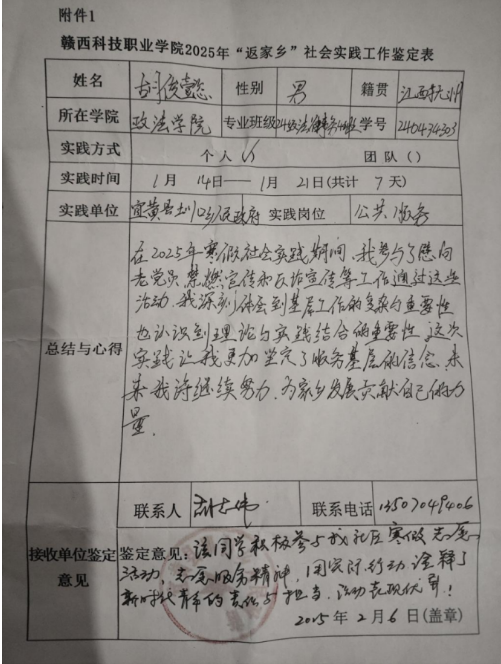 附件1
赣西科技职业学院2025年“返家乡”社会实践工作鉴定表
姓名 胡俊懿 性别 男 籍贯 江西抚州
所在学院 政法学院 专业班级 24级法律事务 班 学号 240434303
实践方式 个人(√) 团队()
实践时间 1月14日——1月21日(共计7天)
实践单位 宜黄县 乡人民政府 实践岗位 公共服务
在2025年寒假社会实践期间,我参与了慰问
老党员,禁燃宣传和反诈宣传等工作通过这些
活动,我深刻体会到基层工作的复杂与重要性
也认识到理论与实践结合的重要性,这次
总结与心得
实践让我更加坚定了服务基层的信念,未
来我将继续努力,为家乡发展贡献自己的力
量.
联系人 联系电话 13507049406
接收单位鉴定意见
鉴定意见:该同学积极参与我社区寒假志愿
活动,志愿服务精神,用实际行动诠释了
新时代青年的责任与担当,活动表现优异!
2025年2月6日(盖章)